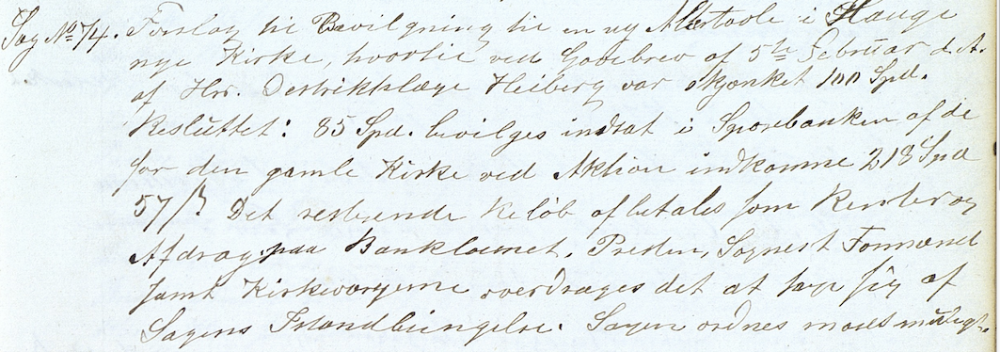 Sag No 74. Forslag til Bevilgning til en ny Altertavle i Hauge
nye Kirke, hvortil ved Gavebrev af 5te Februar d. A.
af Hr. Destriktslæge Heiberg var skjænket 100 Spd.
Besluttet: 85 Spd. bevilges indsat i Sparebanken af de
for den gamle Kirke ved Auktion indkomne 218 Spd
57 ß Det resterende Beløb afbetales som Renter og
Afdrag paa Banklaanet. Presten, Sognets Formænd
samt Kirkeværgerne overdrages det at sørge sig af
Sagens Istandbringelse. Sagen ordnes